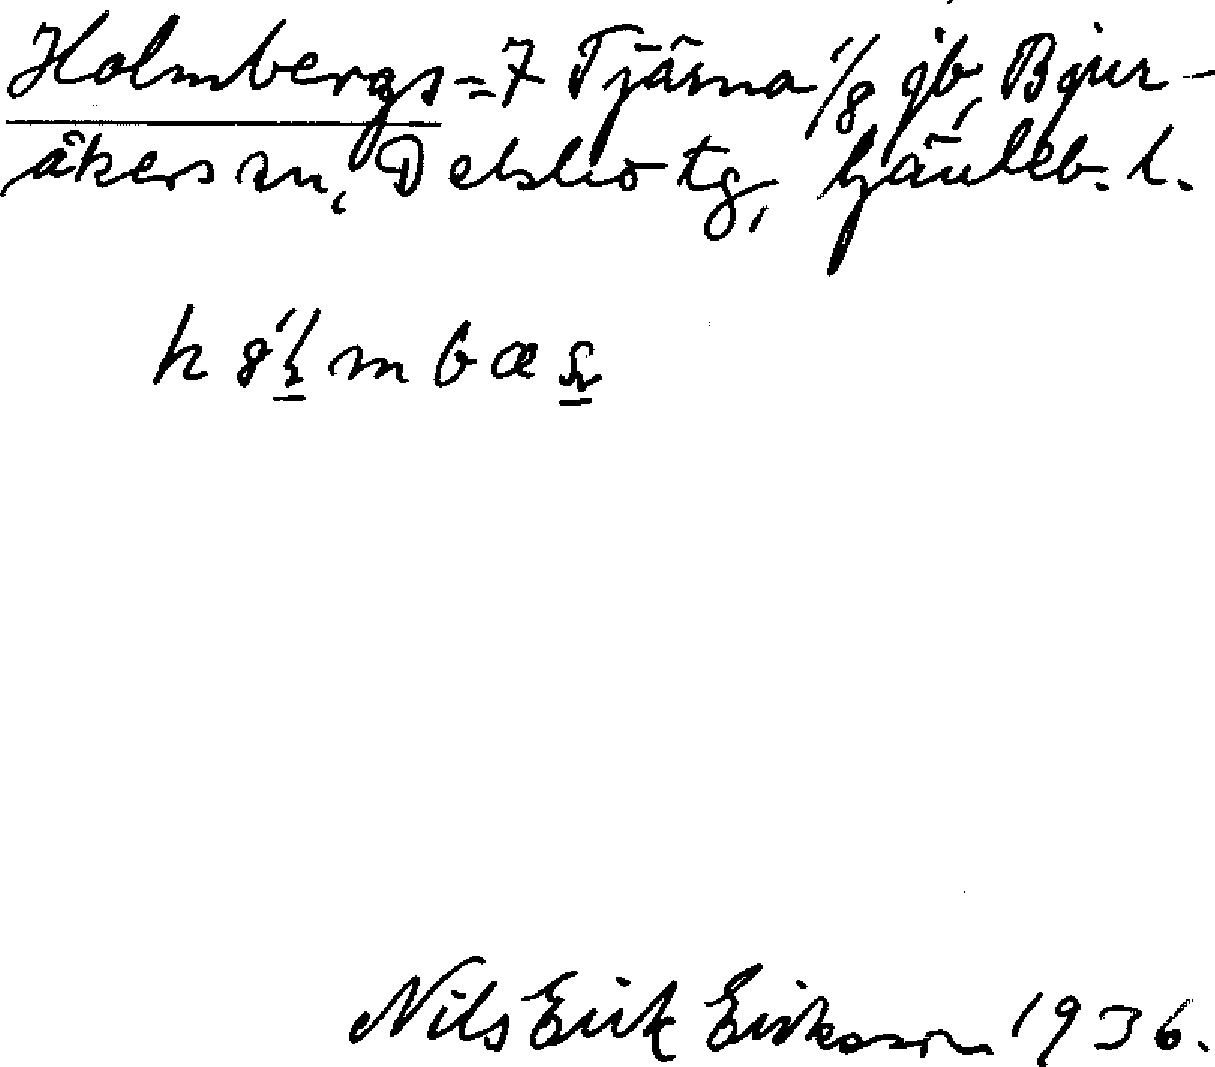 Holmbergs = 7 Tjärna 1/8 jb, Bjur-
åkers sn, Delsbo tg, Gävleb. l.
Nils Erik Eriksson 1936.